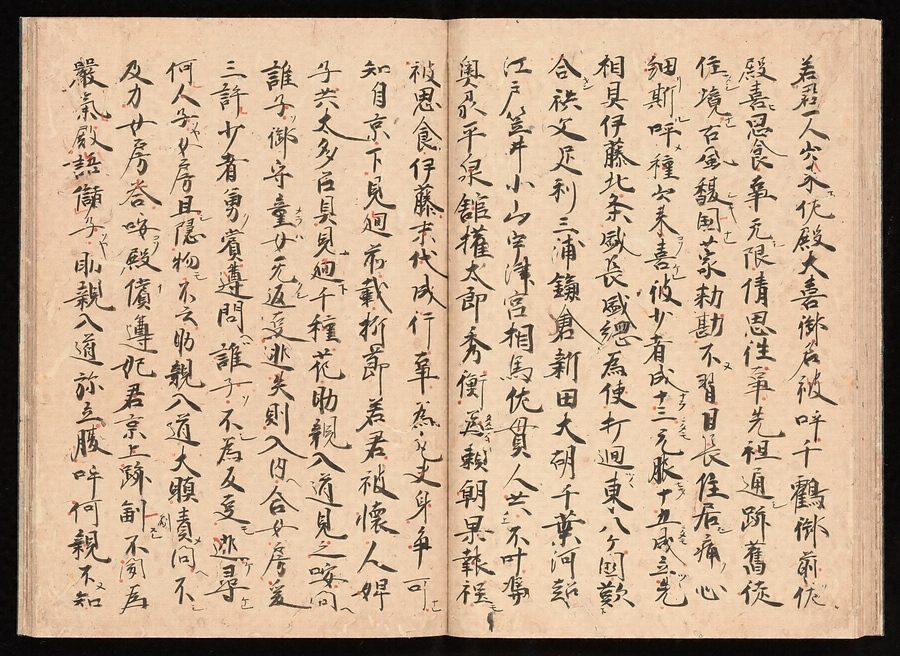 若君一人出来佐殿大喜御名被呼千鶴御前佐
殿喜思食事无限倩思往事先祖通跡舊徒
住境古風馥国蒙勅勘不習日長住居痛心
細斯呼種出来喜彼少者成十三元服十五成立先
相具伊藤北条盛長盛綱為使打廻東八ケ国歎
合秩父足利三浦鎌倉新田大胡千葉河越
江戸笠井小山宇津宮相馬佐貫人共不叶集
奥刕平泉舘権太郎秀衡為頼朝果報程
被思食伊藤末代成行事為丈身争可
知自京下見廻前栽折節若君被懐人婢
子共太多召具見廻千種花助親入道見之咬問
誰子御守童女无返事迯失則入内合女房爰
三計少者勇賞遵問誰子不為返事迯尋
何人子女房且隠物不云助親入道大順責問不
及力女房答咬殿償遵妃君京上跡副不聞為
嚴氣殿語儲子助親入道弥立腹呼何親不知